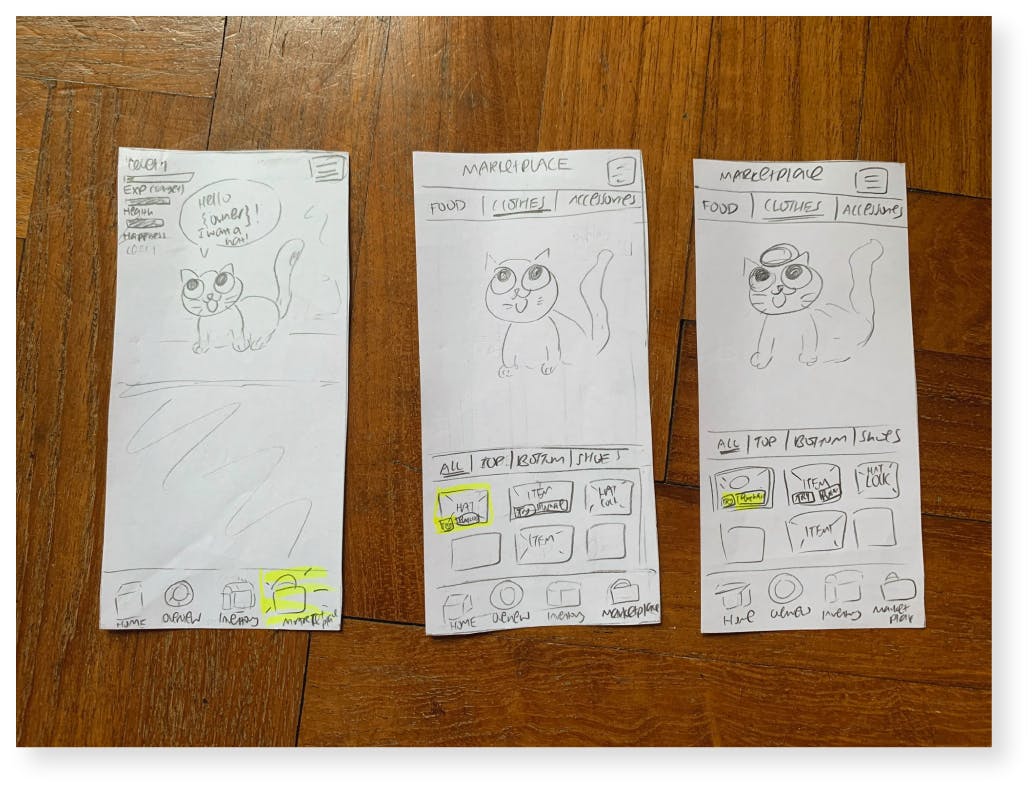 Level 1
Exp (target)
Health
Happiness
Hello
{owner}!
I want a
hat!
HOME
Overview
Inventory
Market
place
MARketPLACE
FOOD | CLOTHES | Accessories
ALL | TOP | BOTTOM | SHOES
HAT
Try
ITEM
Try
HAT
ITEM
HOME
Overview
Inventory
Marketplace
Marketplace
FOOD | CLOTHES | Accessories
ALL | TOP | BOTTOM | SHOES
Try
ITEM
TRY
HAT
ITEM
Home
Overview
Inventory
Market
place